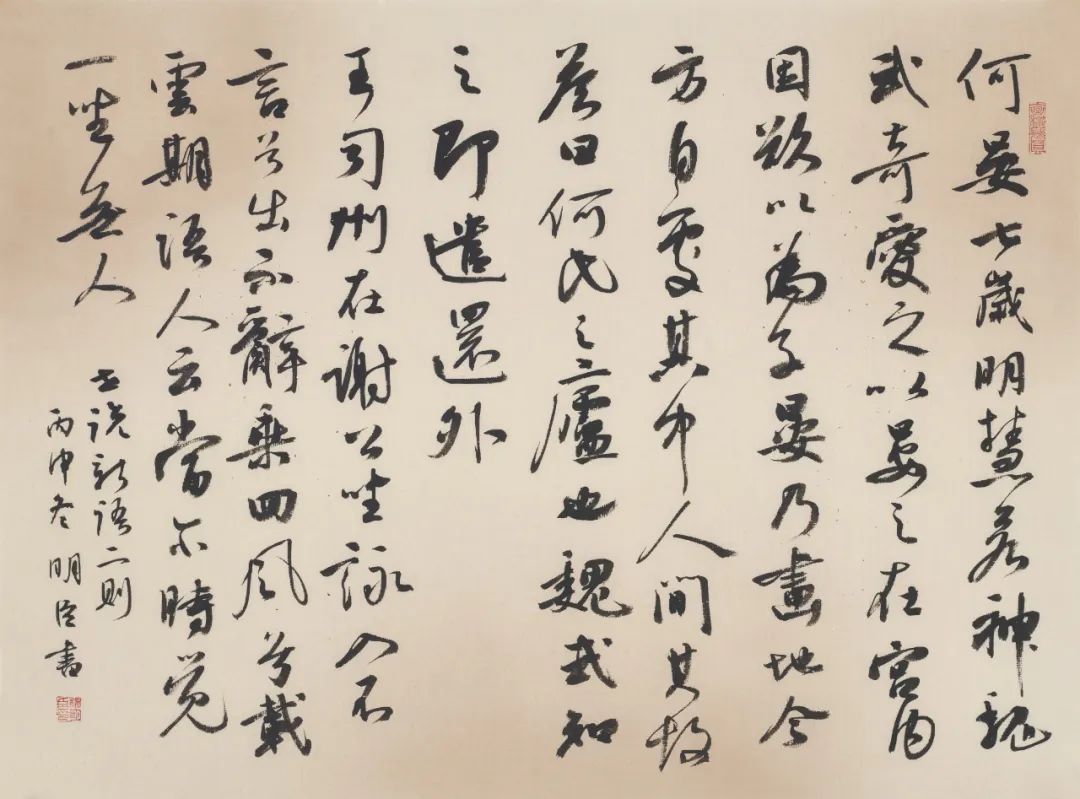 何晏七歲明慧若神魏
武奇愛之以晏之在宮内
因欲以為子晏乃畫地令
方自處其中人問其故
答曰何氏之廬也魏武知
之即遣還外
王司州在謝公坐詠入不
言兮出不辭乘回風兮載
雲期語人云當尔時覺
一坐無人
世説新語二則
丙申冬明臣書